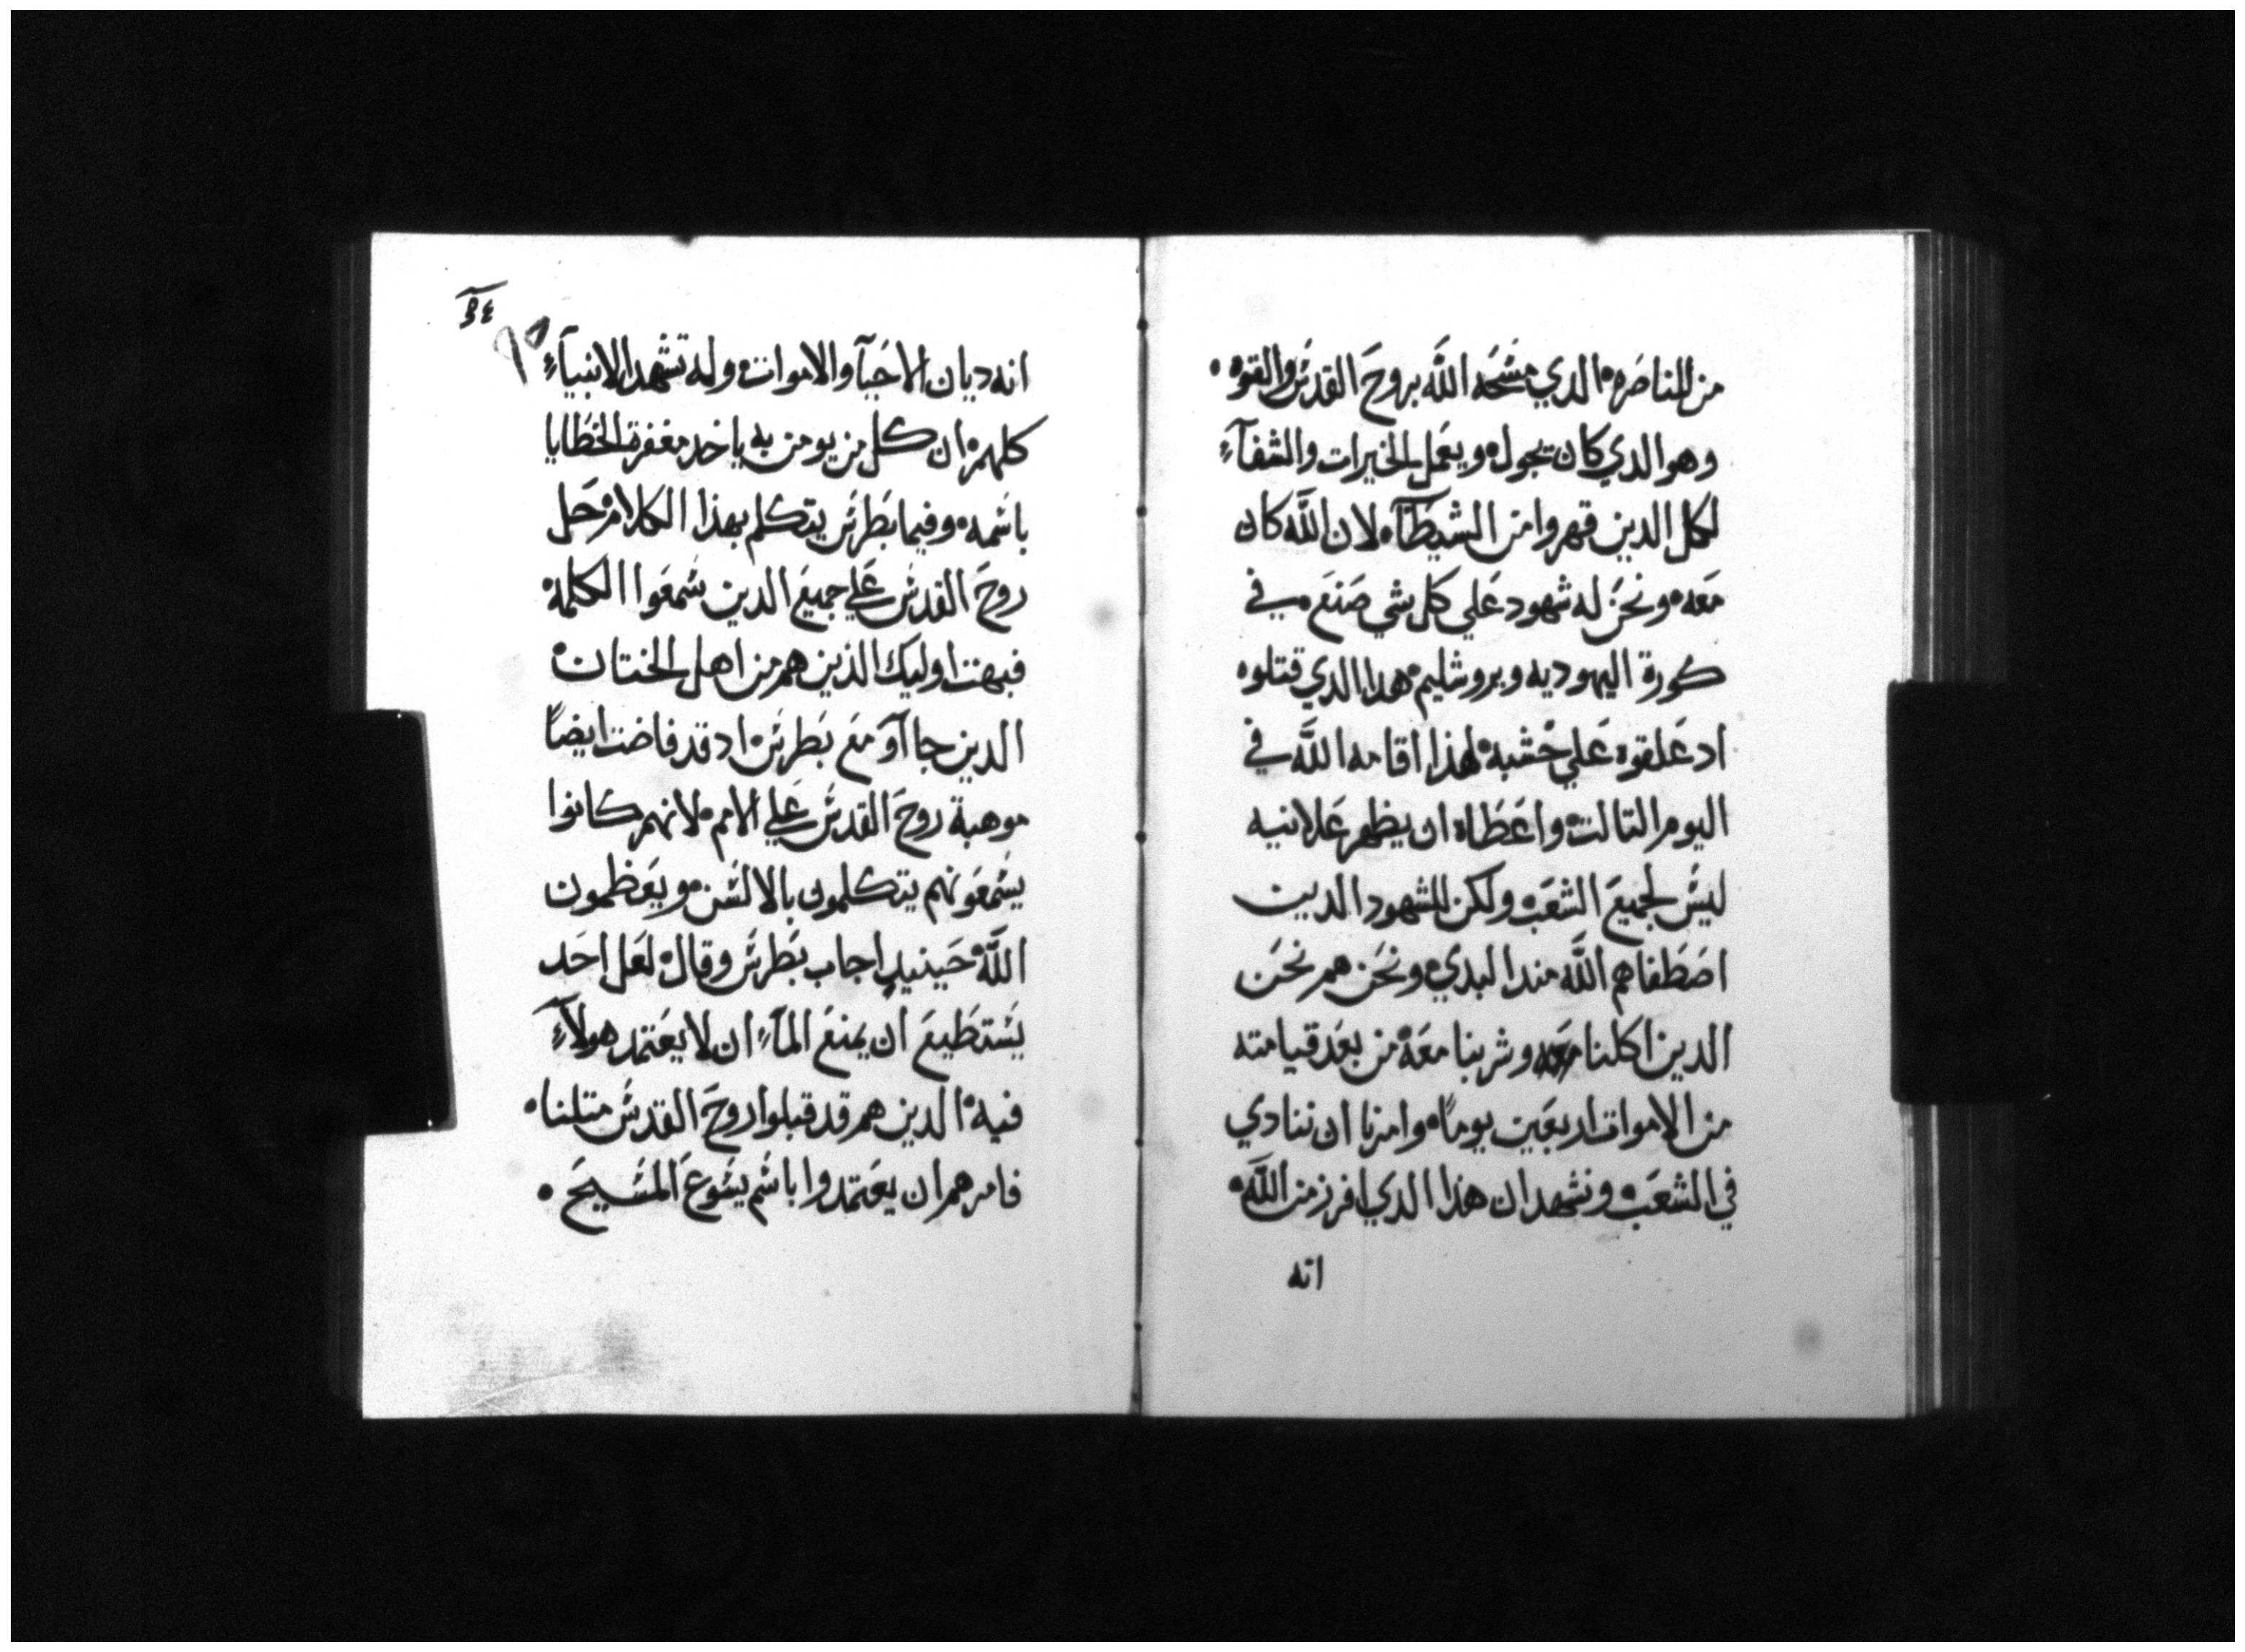 من الناصره الدي مسَحَه اللَّه بروحَ القدسَ والقوه
وهو الدي كان يجول ويعَمل الخيرات والشفآءِ
لكل الدين قهروا من الشيطَان لان اللَّه كان
مَعَه ونحَن له شهود عَلي كل شي صَنَعَ في
كورة اليهوديه ويروشليم هدا الدي قتلوه
اد عَلقوه عَلي خشبه لهذا اقامه اللَّه في
اليوم التالت واعَطَاه ان يظهر عَلانيه
ليسَ لجميعَ الشعَب ولكن للشهود الدين
اصَطَفاهم اللَّه مند البدي ونحَن هم نحَن
الدين اكلنا معَه وشربنا معَه من بعَد قيامته
من الاموات اربعَين يوماً وامرنا ان ننادي
في الشعَب ونشهد ان هذا الدي افرز من اللَّه
انه
انه ديان الاحَيآ والاموات وله تشَهد الانبيآءِ
كلهم ان كل من يومن به ياخد مغفرة الخطَايا
باسَمه وفيما بطَرسَ يتكلم بهذا الكلام حَل
روحَ القدسَ عَلي جميعَ الدين سَمعَوا الكلمه
فبهت اوليك الذين هم من اهل الختان
الدين جاآوَ معَ بطَرسَ اد قد فاضت ايضاً
موهبة روحَ القدسَ عَلي الامم لانهم كانوا
يسَمعَونهم يتكلمون بالالسَن ويعَظمون
اللَّه حَينيدٍ اجاب بطَرسَ وقال لعَل احَد
يسَتطَيعَ ان يمنعَ المآءِ ان لا يعَتمد هولآءِ
فيه الدين هم قد قبلوا روحَ القدسَ متلنا
فامرهم ان يعَتمدوا باسَم يسَوعَ المسَيحَ